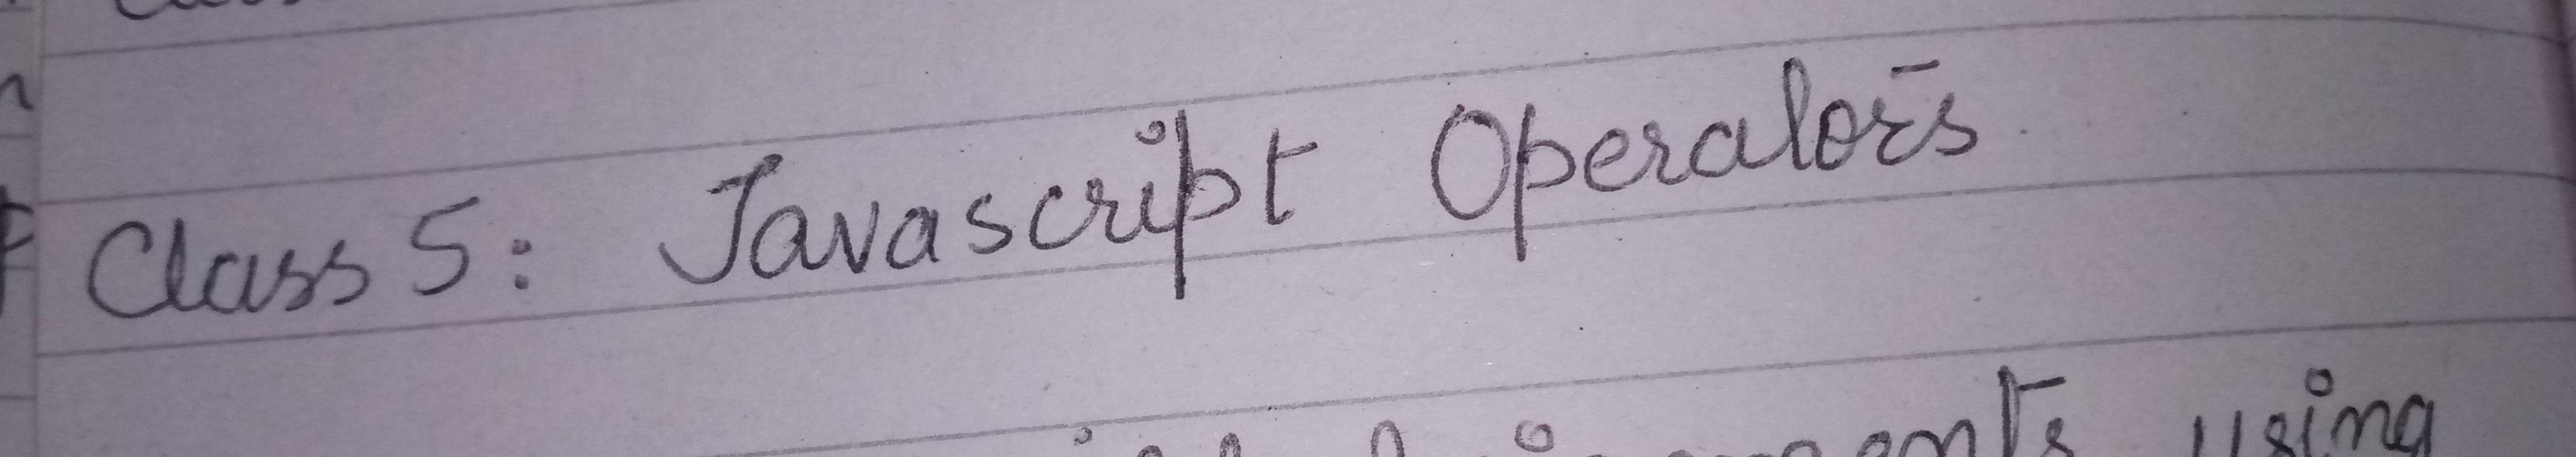 Class 5: Javascript Operators
using